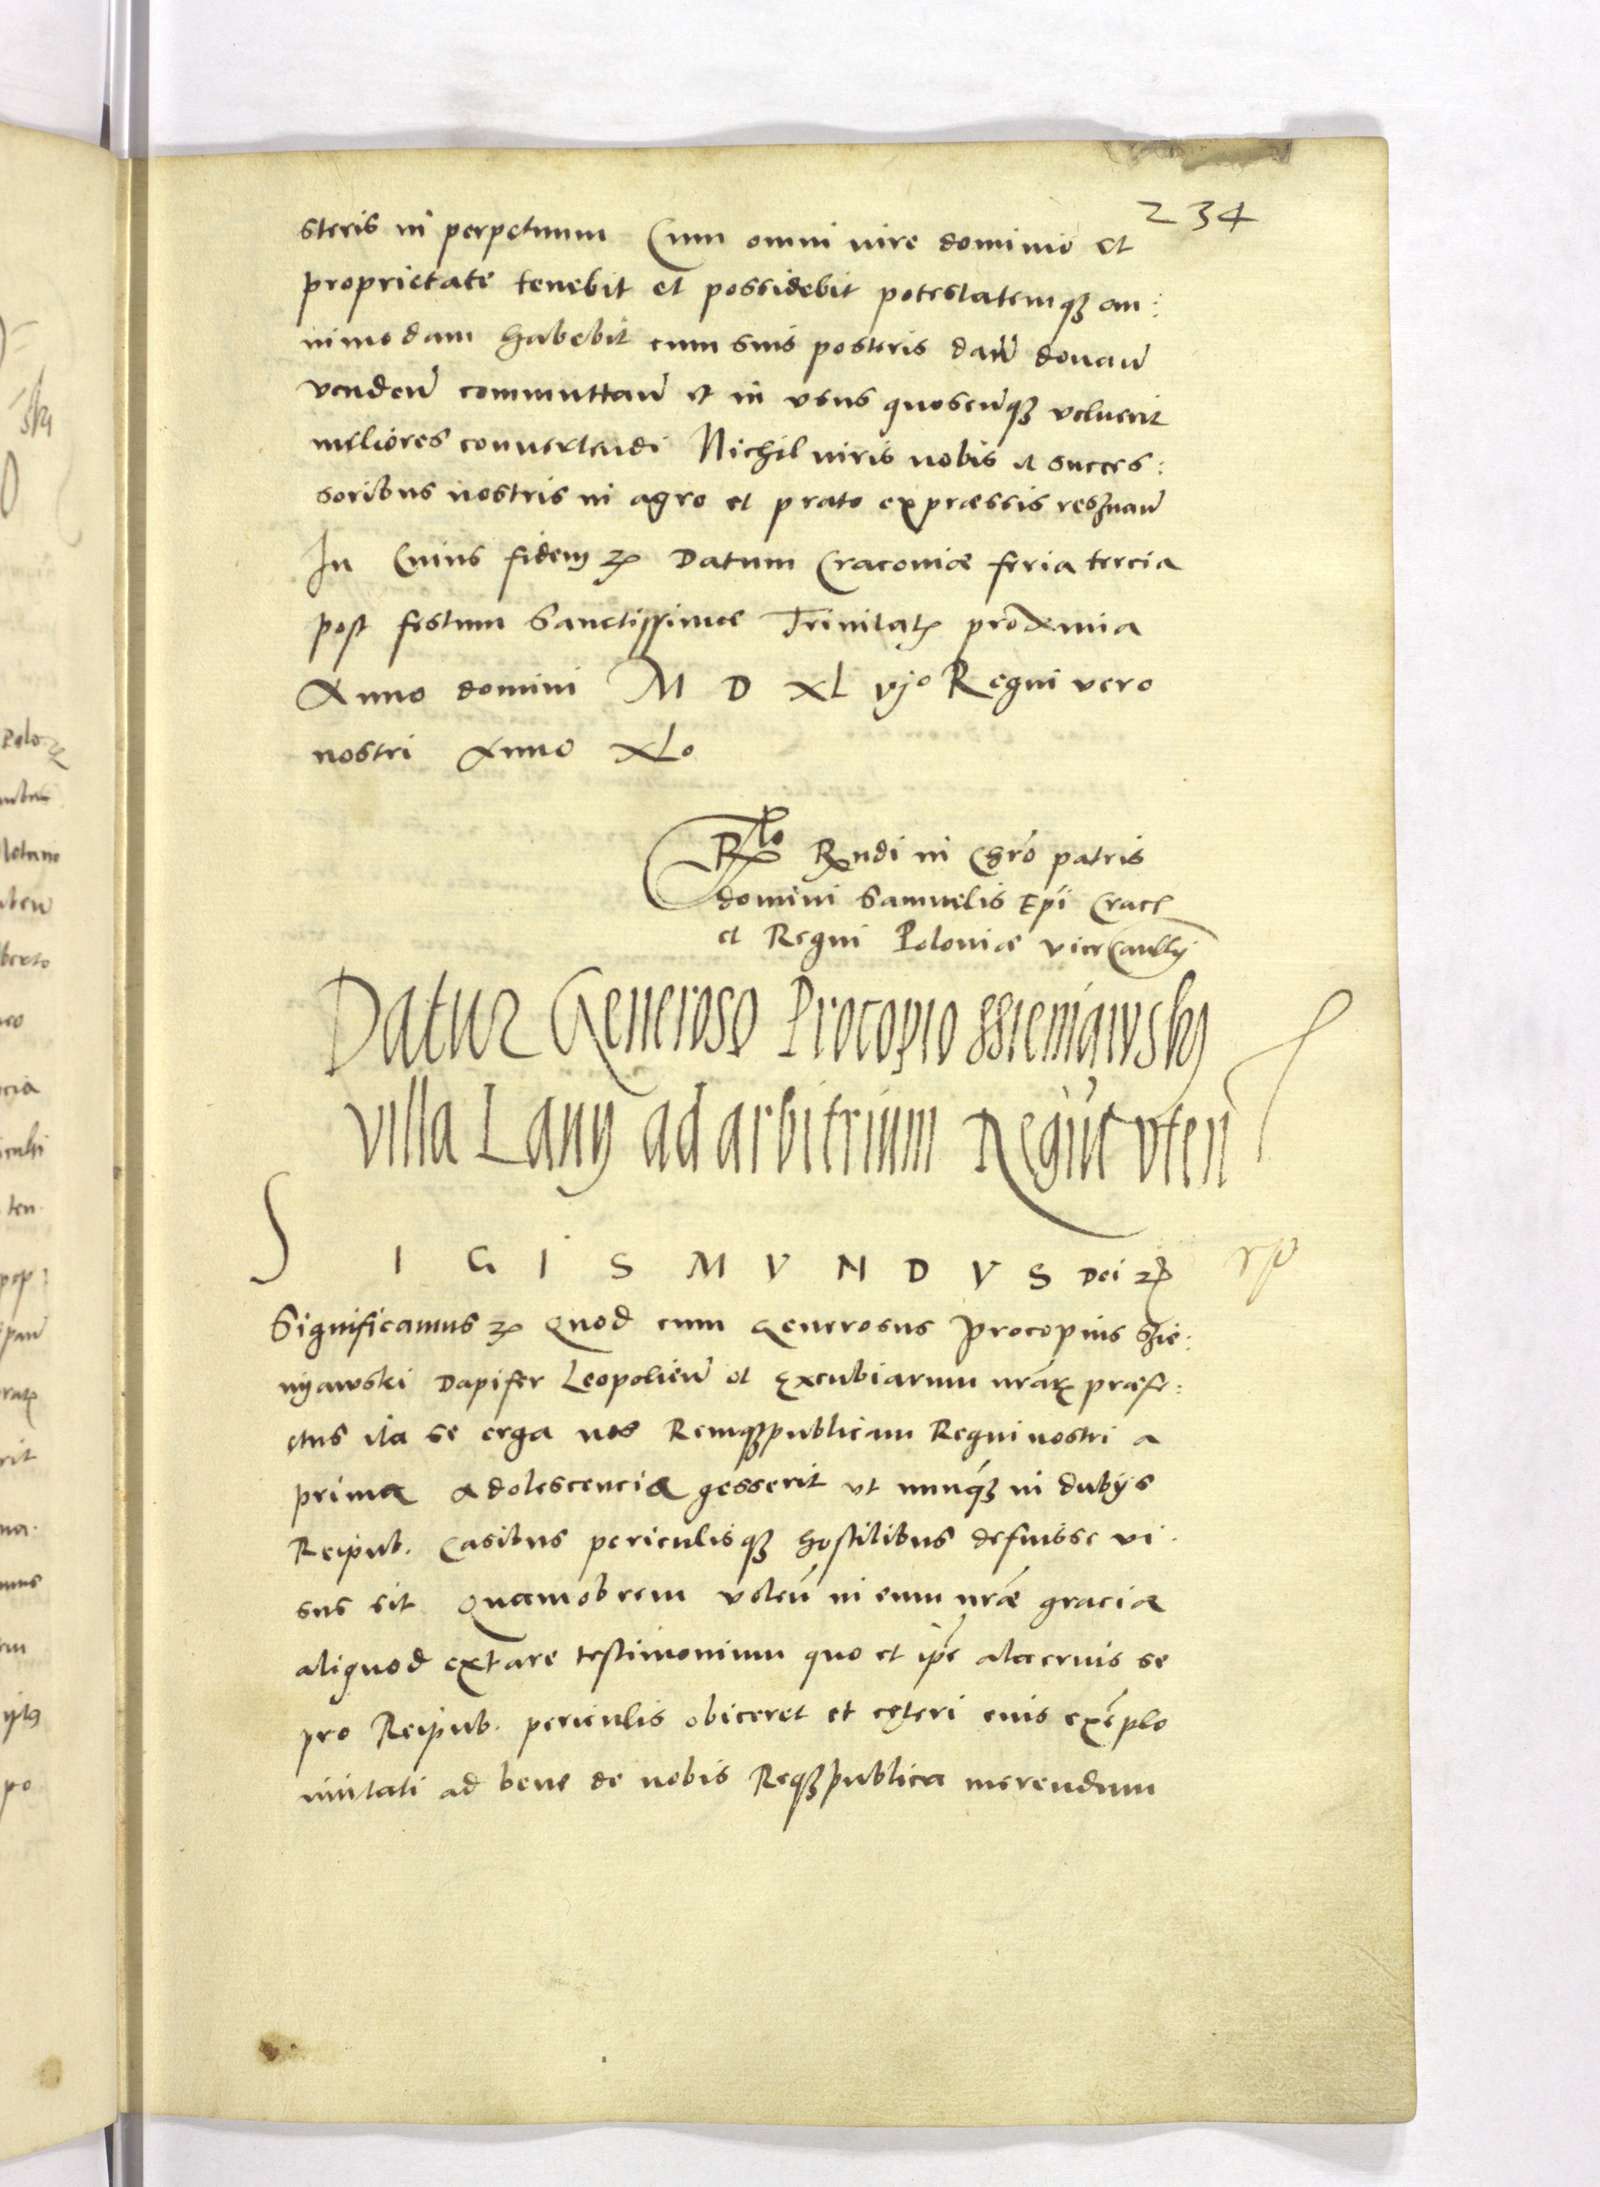 234
steris in perpetuum Cum omni iure dominio et
proprietate tenebit et possidebit potestatemqȝ om:
nimodam habebit cum suis posteris dan̄ donan̄
venden̄ commuttan̄ et in vsus quoscun̄qȝ voluerit
meliores convertendi Nichil iuris nobis et succes:
soribus nostris in agro et prato expraessis reservan̄
In Cuius fidem ꝛc Datum Cracoviæ feria tercia
post festum Sanctissimæ Trinitatis proxima
Anno domini M D XL vjo Regni vero
nostri Anno XLo
Rlo Rndi in Chro patris
domini Samuelis Epi Crac
et Regni Poloniæ viceCancllrj
Datur Generoso Procopio SSieniawsky
villa Lany ad arbitrium Regiūt vten̄
S I G I S M V N D V S Dei ꝛc
Significamus ꝛc Quod cum Generosus Procopius Szie:
nyawski Dapifer Leopolien̄ et Excubiarum nrar præfe:
ctus ita se erga nos Remqȝpublicam Regni nostri a
prima Adolescencia gesserit vt nunqȝ in dubijs
Reipub. Casibus periculisqȝ hostilibus defuisse vi:
sus sit Quamobrem volen̄ in eum nræ graciæ
aliquod extare testimonium quo et ipe alacrius se
pro Reipub. periculis obiceret et cęteri eius exēplo
invitati ad bene de nobis Reqȝpublica merendum